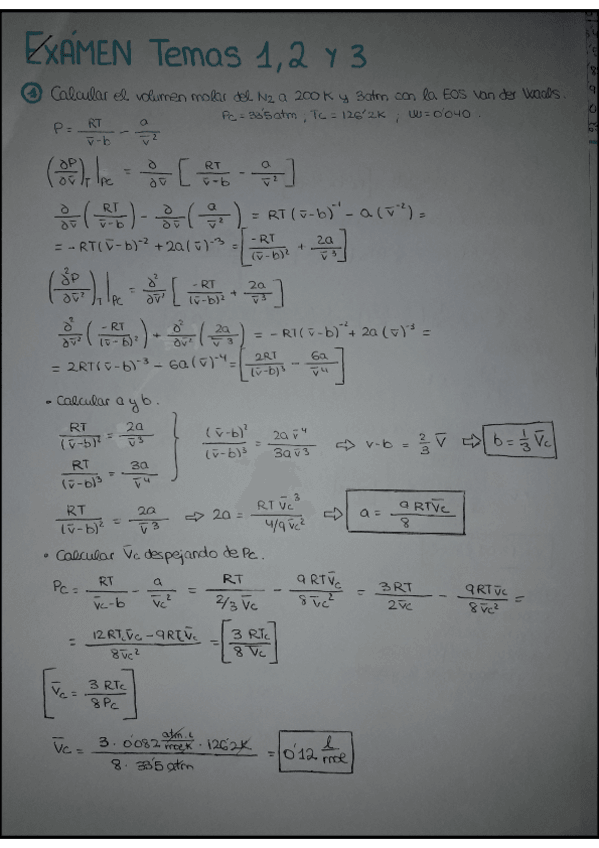 EXÁMEN Temas 1, 2 y 3
① Calcular el volumen molar del N2 a 200K y 3atm con la EOS van der Waals.
Pc = 33'5 atm ; Tc = 126'2K ; W = 0'040.
P = RT/(v̄-b) - a/v̄²
(∂P/∂v̄)_T |Pc = ∂/∂v̄ [ RT/(v̄-b) - a/v̄² ]
∂/∂v̄ (RT/(v̄-b)) - ∂/∂v̄ (a/v̄²) = RT(v̄-b)⁻¹ - a(v̄⁻²) =
= -RT(v̄-b)⁻² + 2a(v̄)⁻³ = [ -RT/(v̄-b)² + 2a/v̄³ ]
(∂²P/∂v̄²)_T |Pc = ∂²/∂v̄² [ -RT/(v̄-b)² + 2a/v̄³ ]
∂²/∂v̄² (-RT/(v̄-b)²) + ∂²/∂v̄² (2a/v̄³) = -RT(v̄-b)⁻² + 2a(v̄)⁻³ =
= 2RT(v̄-b)⁻³ - 6a(v̄)⁻⁴ = [ 2RT/(v̄-b)³ - 6a/v̄⁴ ]
• Calcular a y b.
RT/(v̄-b)² = 2a/v̄³
RT/(v̄-b)³ = 3a/v̄⁴ } (v̄-b)²/(v̄-b)³ = 2a v̄⁴/3a v̄³ ⇒ v-b = 2/3 v̄ ⇒ b = 1/3 v̄c
RT/(v̄-b)² = 2a/v̄³ ⇒ 2a = RT v̄c³/(4/9 v̄c²) ⇒ a = 9RTv̄c/8
• Calcular v̄c despejando de Pc.
Pc = RT/(v̄c-b) - a/v̄c² = RT/(2/3 v̄c) - 9RTv̄c/8v̄c² = 3RT/2v̄c - 9RTv̄c/8v̄c² =
= (12RTcv̄c - 9RTcv̄c)/8v̄c² = [ 3RTc/8v̄c ]
[ v̄c = 3RTc/8Pc ]
v̄c = (3 · 0'082 atm·l/mol·K · 126'2K)/(8 · 33'5 atm) = 0'12 l/mol